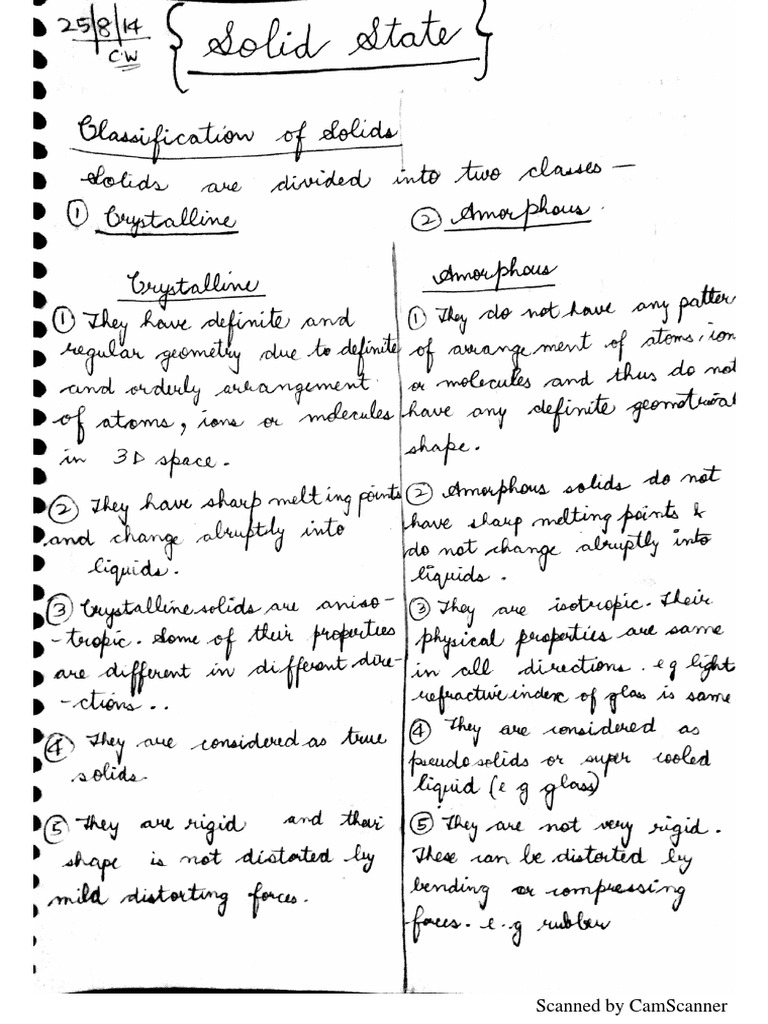 25/8/14
CW
Solid State
Classification of Solids
Solids are divided into two classes —
① Crystalline
② Amorphous.
Crystalline
① They have definite and
regular geometry due to definite
and orderly arrangement
of atoms, ions or molecules
in 3D space.
② They have sharp melting points
and change abruptly into
liquids.
③ Crystalline solids are aniso-
-tropic. Some of their properties
are different in different dire-
-ctions..
④ They are considered as true
solids.
⑤ They are rigid and their
shape is not distorted by
mild distorting forces.
Amorphous
① They do not have any patter
of arrangement of atoms, ion
or molecules and thus do not
have any definite geometrical
shape.
② Amorphous solids do not
have sharp melting points &
do not change abruptly into
liquids.
③ They are isotropic. Their
physical properties are same
in all directions. eg light
refractive index of glass is same
④ They are considered as
pseudo solids or super cooled
liquid (e g glass)
⑤ They are not very rigid.
These can be distorted by
bending or compressing
forces. e.g rubber
Scanned by CamScanner